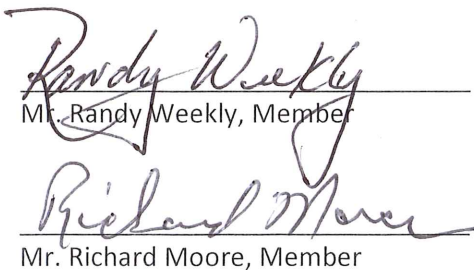 Randy Weekly
Mr. Randy Weekly, Member
Richard Moore
Mr. Richard Moore, Member